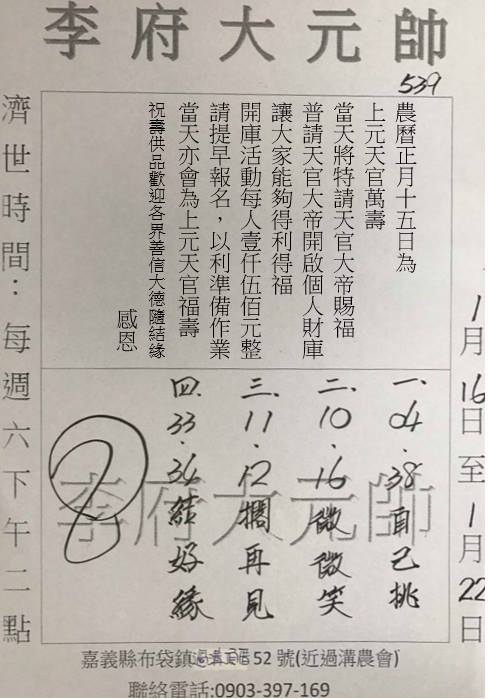 李府大元帥
539
濟世時間：每週六下午二點
農曆正月十五日為
上元天官萬壽
當天將特請天官大帝賜福
普請天官大帝開啟個人財庫
讓大家能夠得利得福
開庫活動每人壹仟伍佰元整
請提早報名，以利準備作業
當天亦會為上元天官福壽
祝壽供品歡迎各界善信大德隨結緣
感恩
1月16日至1月22日
一、04.38自己挑
二、10.16微微笑
三、11.12擱再見
四、33.34結好緣
李府大元帥
嘉義縣布袋鎮
52號(近過溝農會)
聯絡電話:0903-397-169